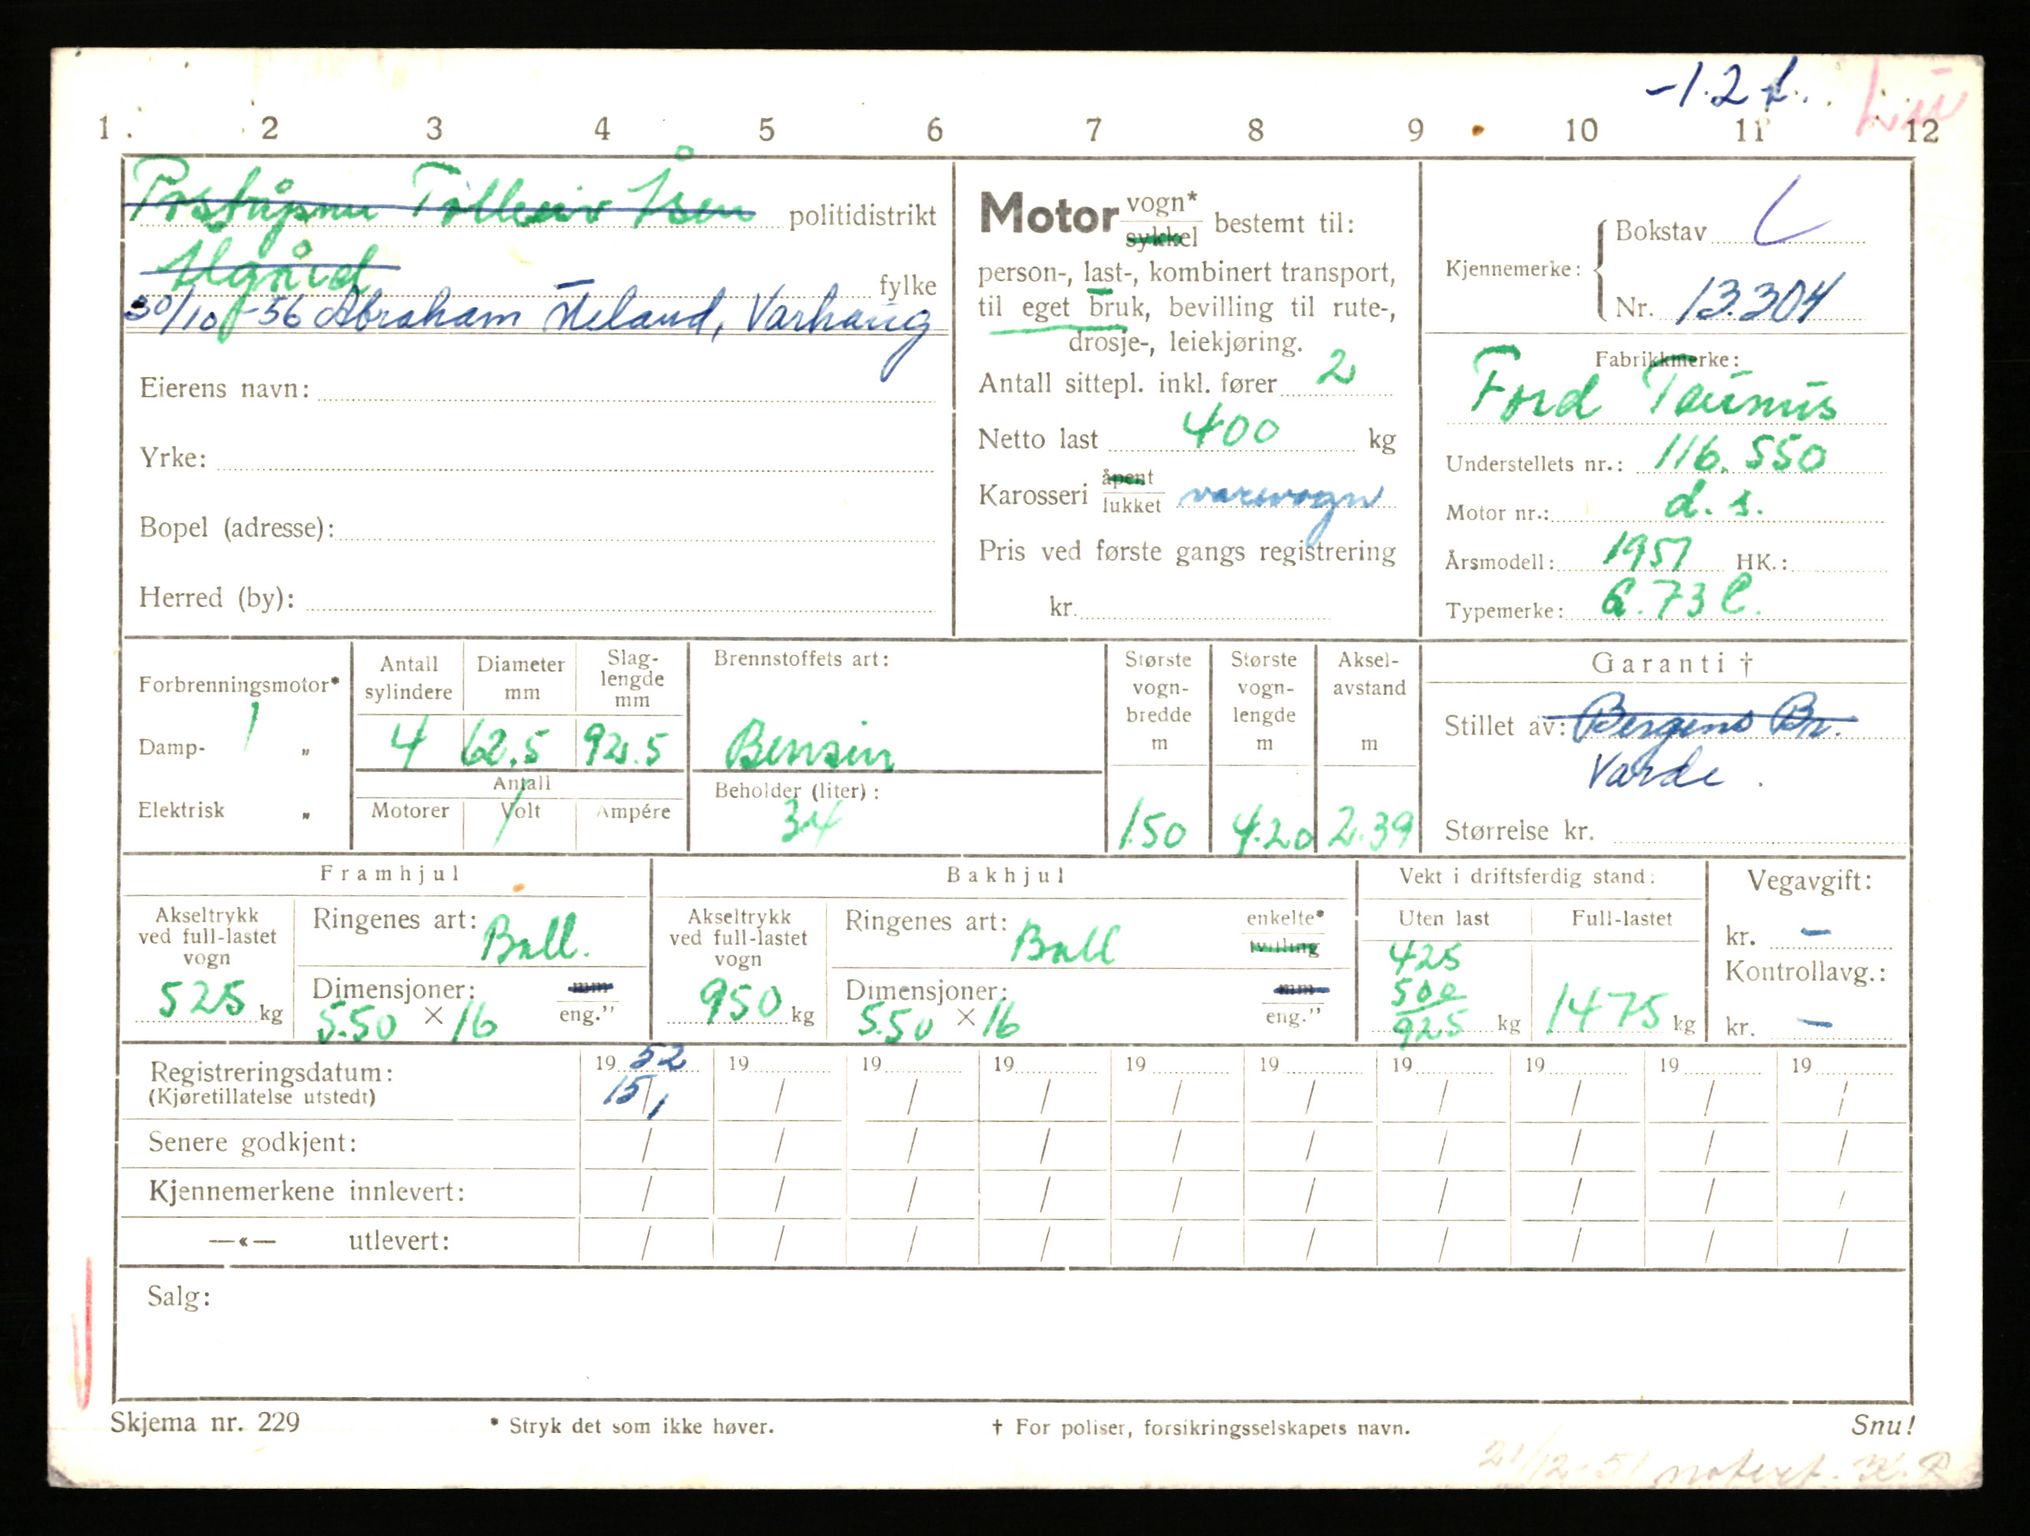 -1.2 t.
1 2 3 4 5 6 7 8 9 10 11 12
Tolleiv Åsen politidistrikt
Ålgård fylke
30/10-56 Abraham Ueland, Varhaug
Eierens navn:
Yrke:
Bopel (adresse):
Herred (by):
Motor vogn* sykkel bestemt til:
person-, last-, kombinert transport,
til eget bruk, bevilling til rute-,
drosje-, leiekjøring.
Antall sittepl. inkl. fører 2
Netto last 400 kg
Karosseri åpent lukket varevogn
Pris ved første gangs registrering
kr.
Kjennemerke: Bokstav L
Nr. 13.304
Fabrikkmerke:
Ford Taunus
Understellets nr.: 116.550
Motor nr.: d. s.
Årsmodell: 1951 HK.:
Typemerke: G.73 C.
Forbrenningsmotor*
Damp- "
Elektrisk "
Antall sylindere Diameter mm Slag-lengde mm
4 62.5 92.5
Antall
Motorer Volt Ampére
Brennstoffets art:
Bensin
Beholder (liter):
34
Største vogn-bredde m
1.50
Største vogn-lengde m
4.20
Aksel-avstand m
2.39
Garanti †
Stillet av: Bergens Br.
Varde.
Størrelse kr.
Framhjul
Akseltrykk ved full-lastet vogn
525 kg
Ringenes art: Ball.
Dimensjoner: mm eng."
5.50 × 16
Bakhjul
Akseltrykk ved full-lastet vogn
950 kg
Ringenes art: Ball enkelte* tvilling
Dimensjoner: mm eng."
5.50 × 16
Vekt i driftsferdig stand:
Uten last Full-lastet
425
500
925 kg 1475 kg
Vegavgift:
kr. -
Kontrollavg.:
kr. -
Registreringsdatum: 19 52 19 19 19 19 19 19 19 19 19
(Kjøretillatelse utstedt) 15/1 / / / / / / / / /
Senere godkjent: / / / / / / / / / /
Kjennemerkene innlevert: / / / / / / / / / /
—«— utlevert: / / / / / / / / / /
Salg:
Skjema nr. 229 * Stryk det som ikke høver. † For poliser, forsikringsselskapets navn. Snu!
21/12-51 notert. K. R